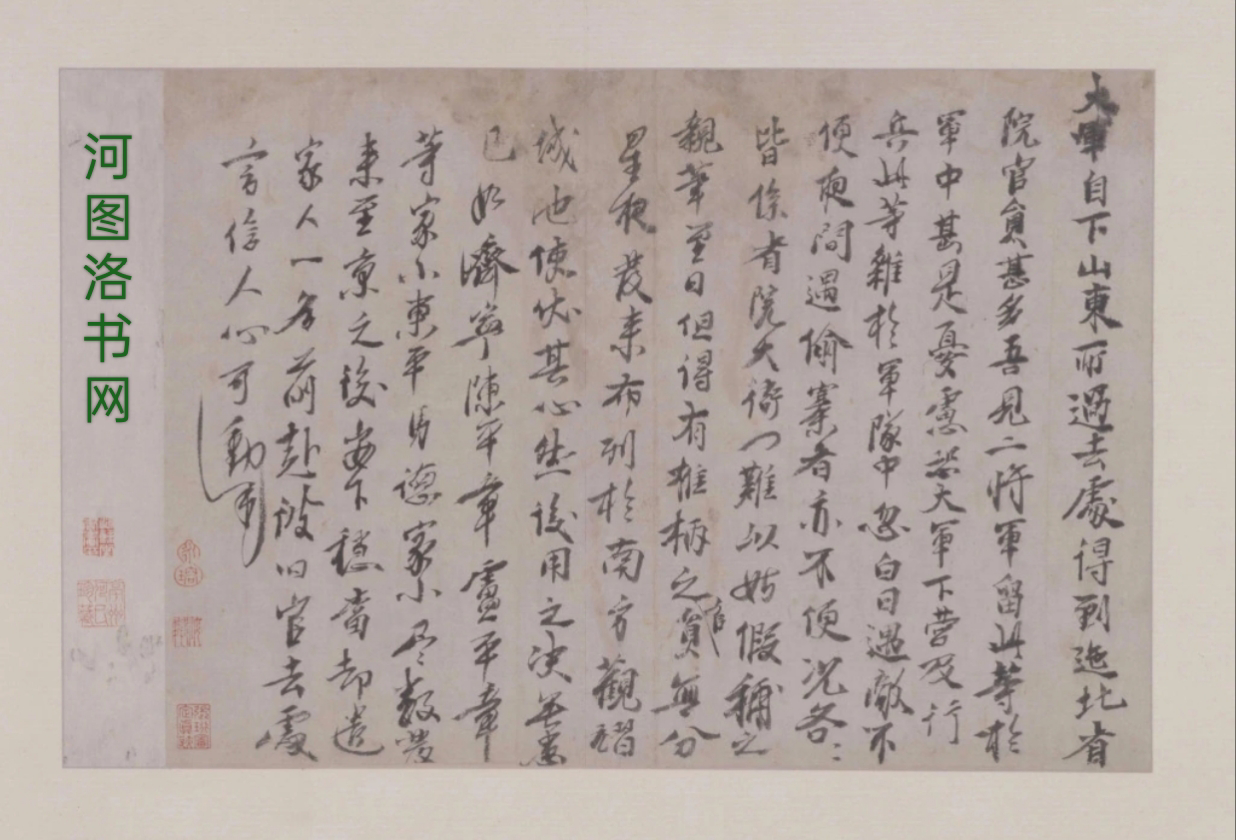 大軍自下山東所過去處得到迤北省
院官員甚多吾見二將軍留此等於
軍中甚是憂慮恐大軍下營及行
兵此等雜於軍隊中忽白日遇敵不
便夜間遇偷寨者亦不便況各各
皆係省院大衙門難以姑假補之
親筆至日但得有椎柄之官員無分
星夜發來布列於南方觀熠
城池使伏其心然後用之決無患
已如濟寧陳平章盧平章
等家小東平馬德家小尽數發
來至京之後安下穩當却遣
家人一名前赴彼旧官去處
言信人心可動
河图洛书网